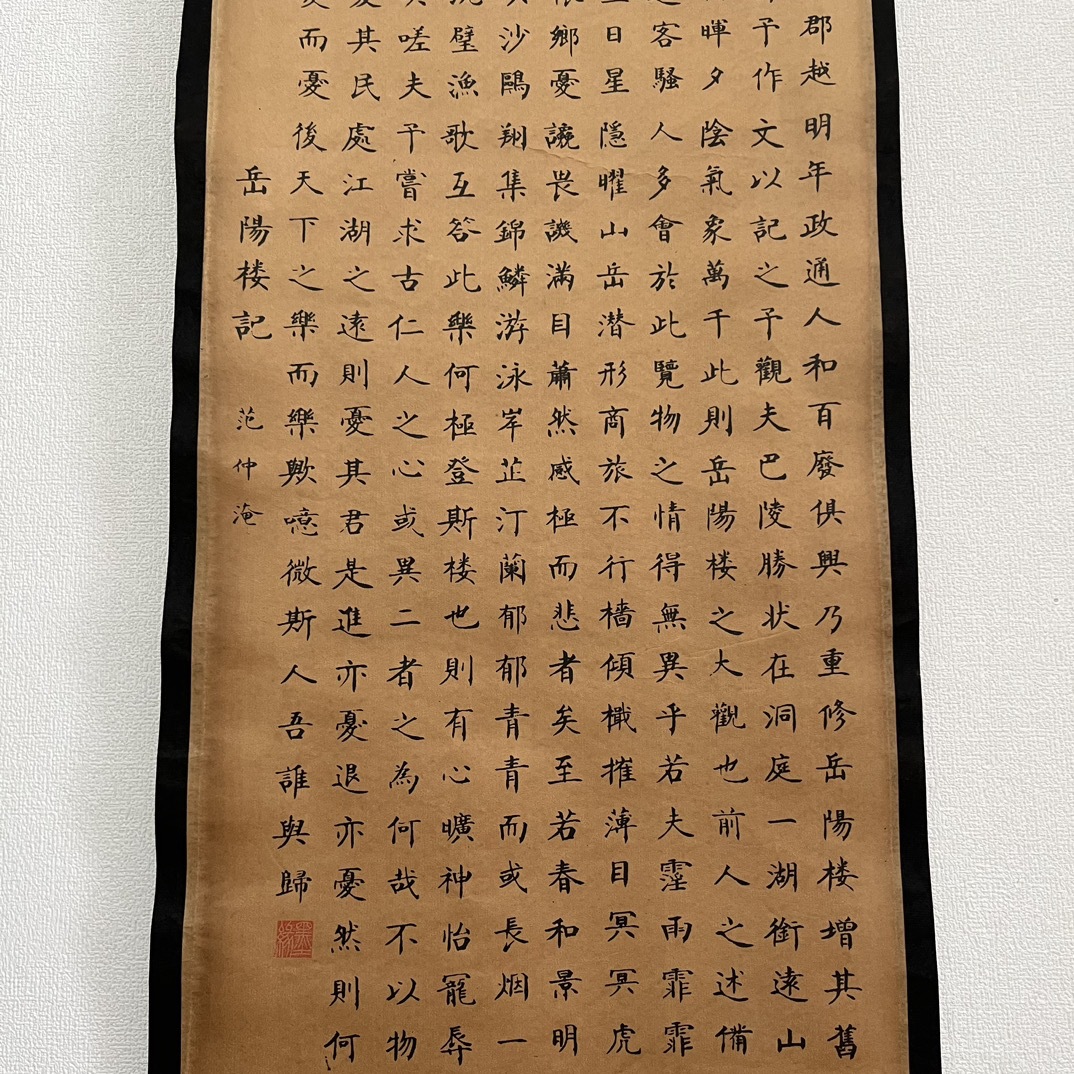 郡越明年政通人和百廢俱興乃重修岳陽楼增其舊
予作文以記之予觀夫巴陵勝状在洞庭一湖銜遠山
暉夕陰氣象萬千此則岳陽楼之大觀也前人之述備
客騷人多會於此覽物之情得無異乎若夫霪雨霏霏
日星隱曜山岳潜形商旅不行檣傾檝摧薄目冥冥虎
鄉憂讒畏譏滿目蕭然感極而悲者矣至若春和景明
沙鷗翔集錦鱗游泳岸芷汀蘭郁郁青青而或長烟一
璧漁歌互答此樂何極登斯楼也則有心曠神怡寵辱
嗟夫予嘗求古仁人之心或異二者之為何哉不以物
其民處江湖之遠則憂其君是進亦憂退亦憂然則何
而憂後天下之樂而樂歟噫微斯人吾誰與歸
岳陽楼記 范仲淹